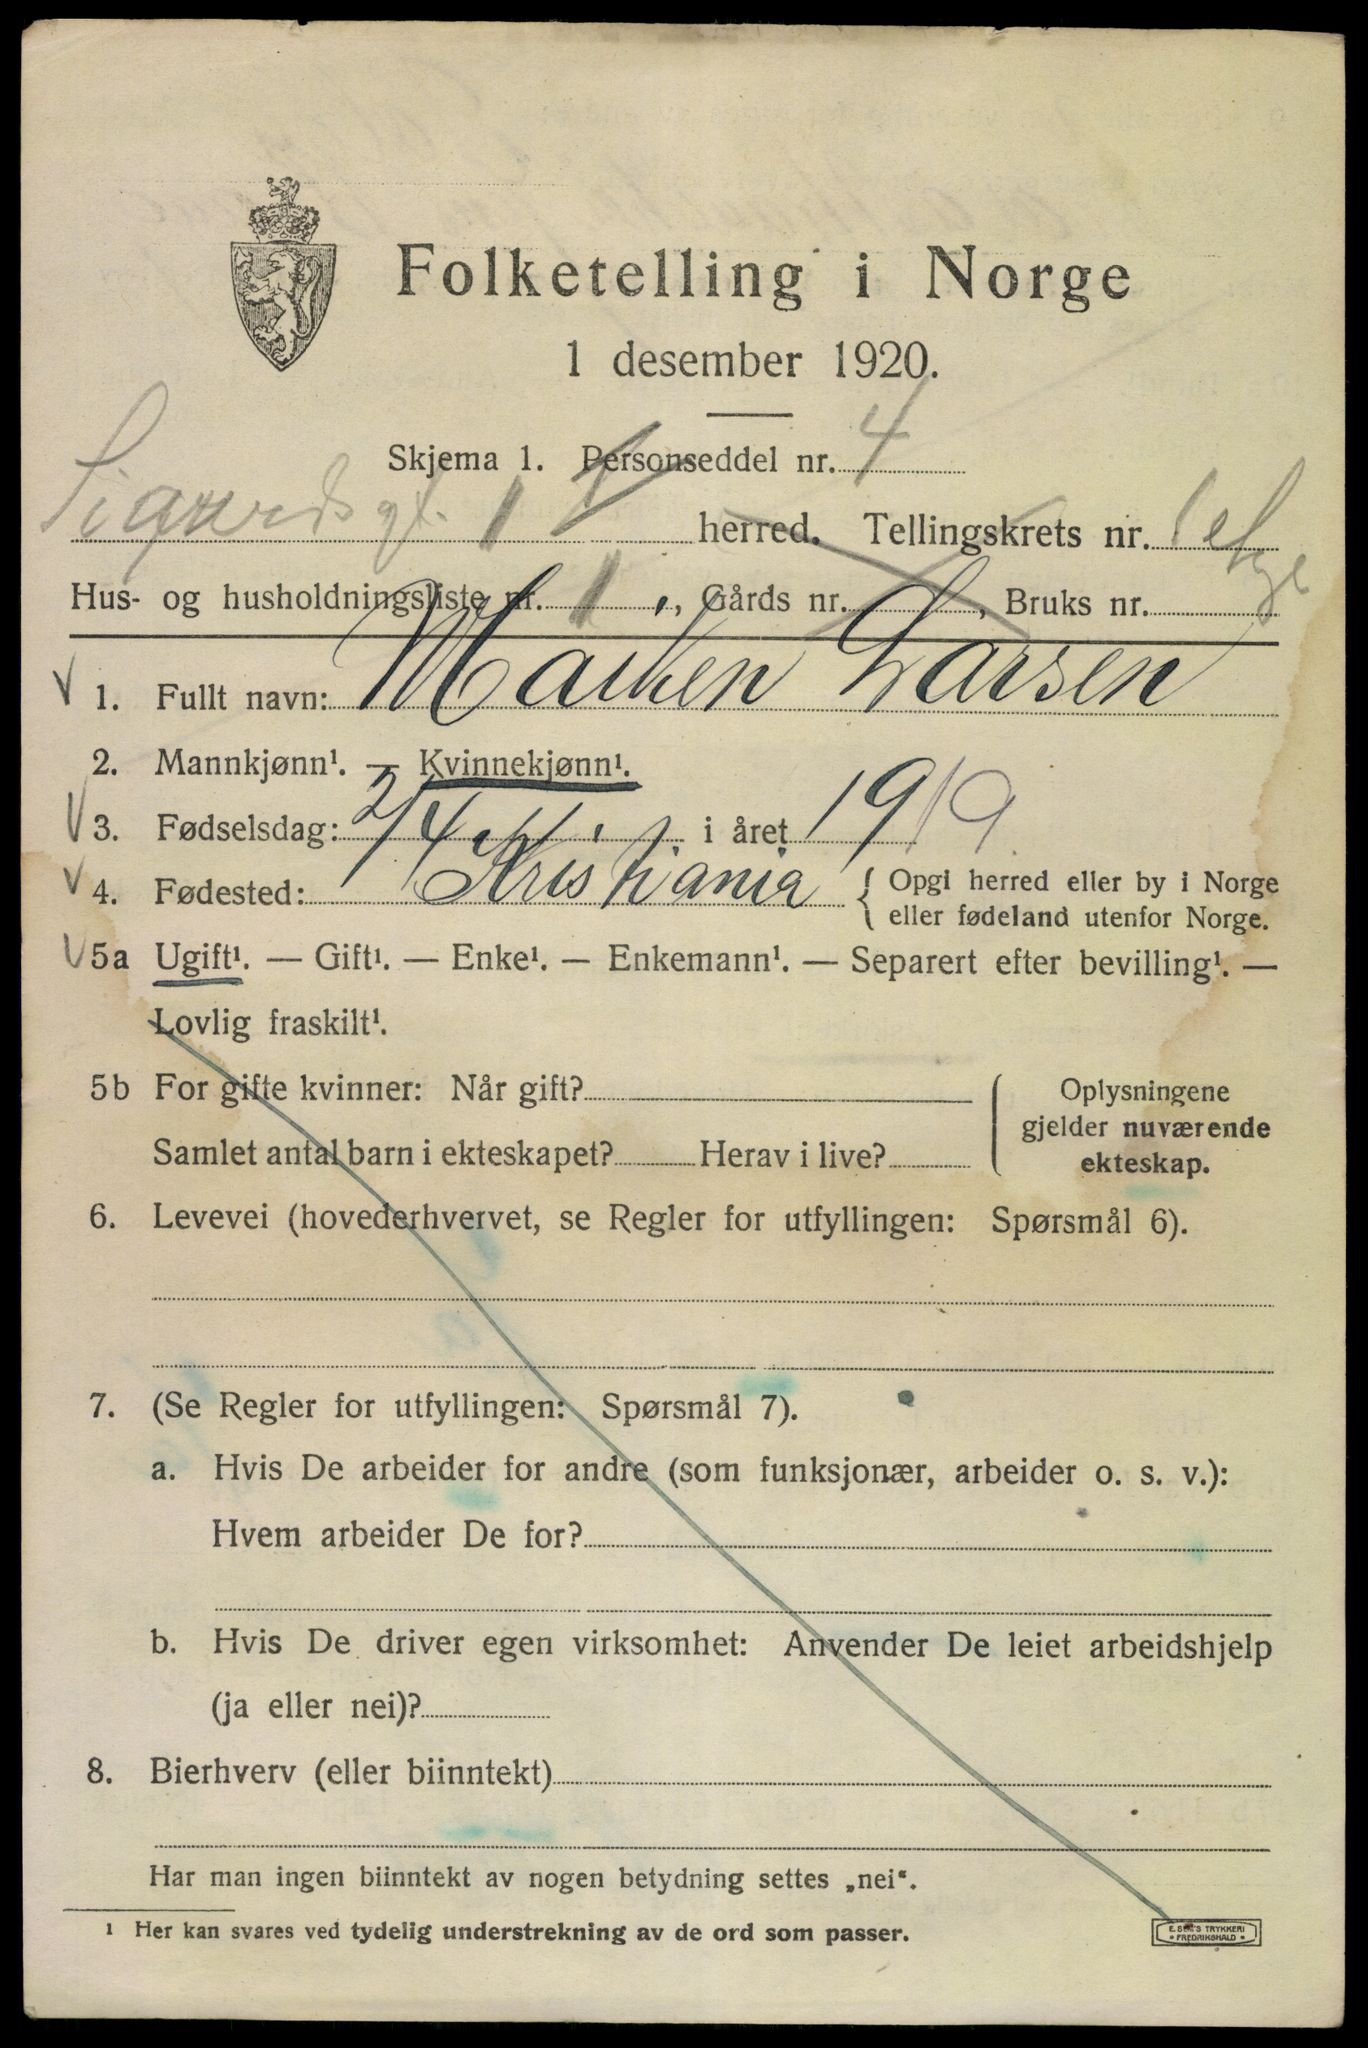 Folketelling i Norge
1 desember 1920.
Skjema 1. Personseddel nr. 4
Sigurdsgt. 1 herred. Tellingskrets nr. 1 etg
Hus- og husholdningsliste nr. 1, Gårds nr. , Bruks nr.
1. Fullt navn: Maiken Larsen
2. Mannkjønn¹. — Kvinnekjønn¹.
3. Fødselsdag: 2/4 i året 1919
4. Fødested: Kristiania { Opgi herred eller by i Norge
eller fødeland utenfor Norge.
5a Ugift¹. — Gift¹. — Enke¹. — Enkemann¹. — Separert efter bevilling¹. —
Lovlig fraskilt¹.
5b For gifte kvinner: Når gift? Oplysningene
gjelder nuværende
Samlet antal barn i ekteskapet? Herav i live? ekteskap.
6. Levevei (hovederhvervet, se Regler for utfyllingen: Spørsmål 6).
7. (Se Regler for utfyllingen: Spørsmål 7).
a. Hvis De arbeider for andre (som funksjonær, arbeider o. s. v.):
Hvem arbeider De for?
b. Hvis De driver egen virksomhet: Anvender De leiet arbeidshjelp
(ja eller nei)?
8. Bierhverv (eller biinntekt)
Har man ingen biinntekt av nogen betydning settes „nei“.
1 Her kan svares ved tydelig understrekning av de ord som passer.
E. SEM'S TRYKKERI
FREDRIKSHALD